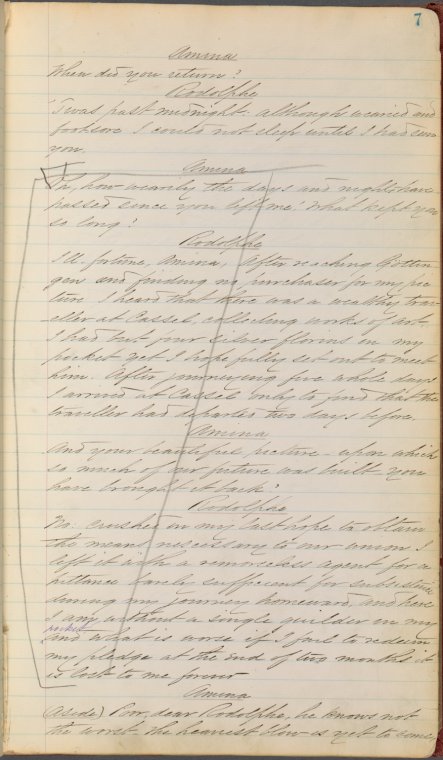 7
Amina
When did you return?
Rodolphe
'Twas past midnight: although wearied and
footsore I could not sleep until I had seen
you.
Amina
Oh, how wearily the days and nights have
passed since you left me! What kept you
so long?
Rodolphe
Ill fortune, Amina, After reaching Gottin
gen and finding no purchaser for my pic
ture I heard that there was a wealthy trav
eller at Cassel, collecting works of art.
I had but four silver florins in my
pocket yet I hopefully set out to meet
him. After journeying five whole days
I arrived at Cassel only to find that the
traveller had departed two days before.
Amina
And your beautiful picture - upon which
so much of our future was built you
have brought it back?
Rodolphe
No: crushed in my last hope to obtain
the means necessary to our union I
left it with a remorseless agent for a
pittance barely sufficient for subsistence
during my journey homeward, and here
I am without a single guilder in my
and what is worse if I fail to redeem
my pledge at the end of two months it
is lost to me forever
Amina
Aside) Poor, dear Rodolphe, he knows not
the worst. The heaviest blow is yet to come,